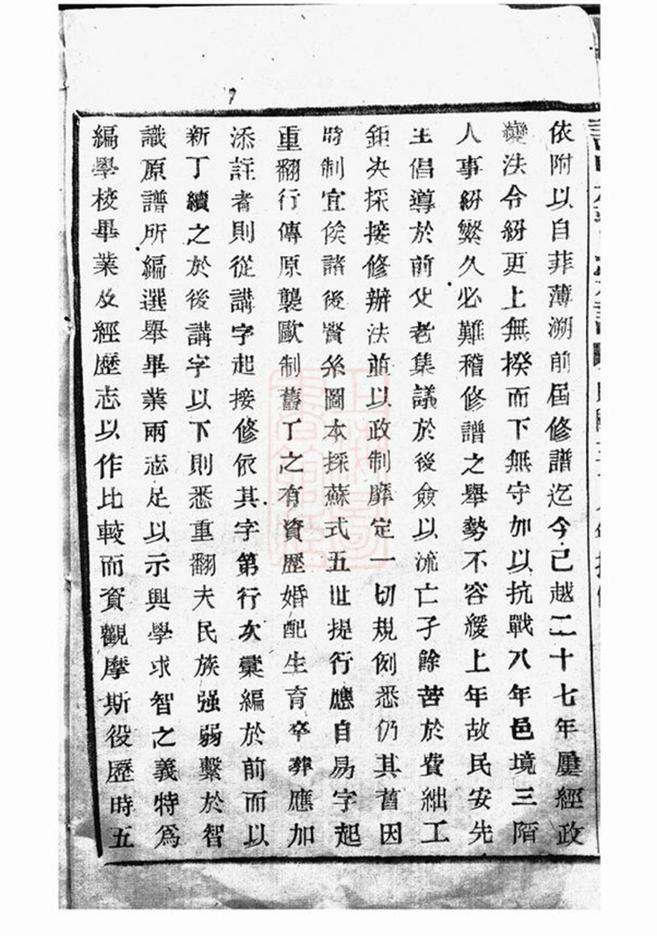 依附以自菲薄溯前屆修譜迄今已越二十七年屢經政
變法令紛更上無揆而下無守加以抗戰八年邑境三陷
人事紛繁久必難稽修譜之舉勢不容緩上年故民安先
生倡導於前父老集議於後僉以流亡孑餘苦於費絀工
鉅决採接修辦法並以政制靡定一切規例悉仍其舊因
時制宜俟諸後賢系圖本採蘇式五世提行應自易字起
重翻行傳原襲歐制舊丁之有資歷婚配生育卒葬應加
添註者則從講字起接修依其字第行次彙編於前而以
新丁續之於後講字以下則悉重翻夫民族强弱繫於智
識原譜所編選舉畢業兩志足以示興學求智之義特爲
編學校畢業及經歷志以作比較而資觀摩斯役歷時五